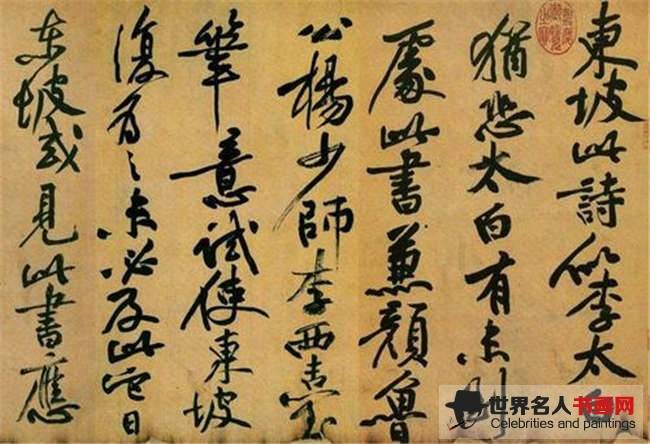 東坡此詩似李太白
猶恐太白有未到
處此書兼顏魯
公楊少師李西臺
筆意試使東坡
復為之未必及此它日
东坡或見此書應
世界名人书画网
Celebrities and paintings